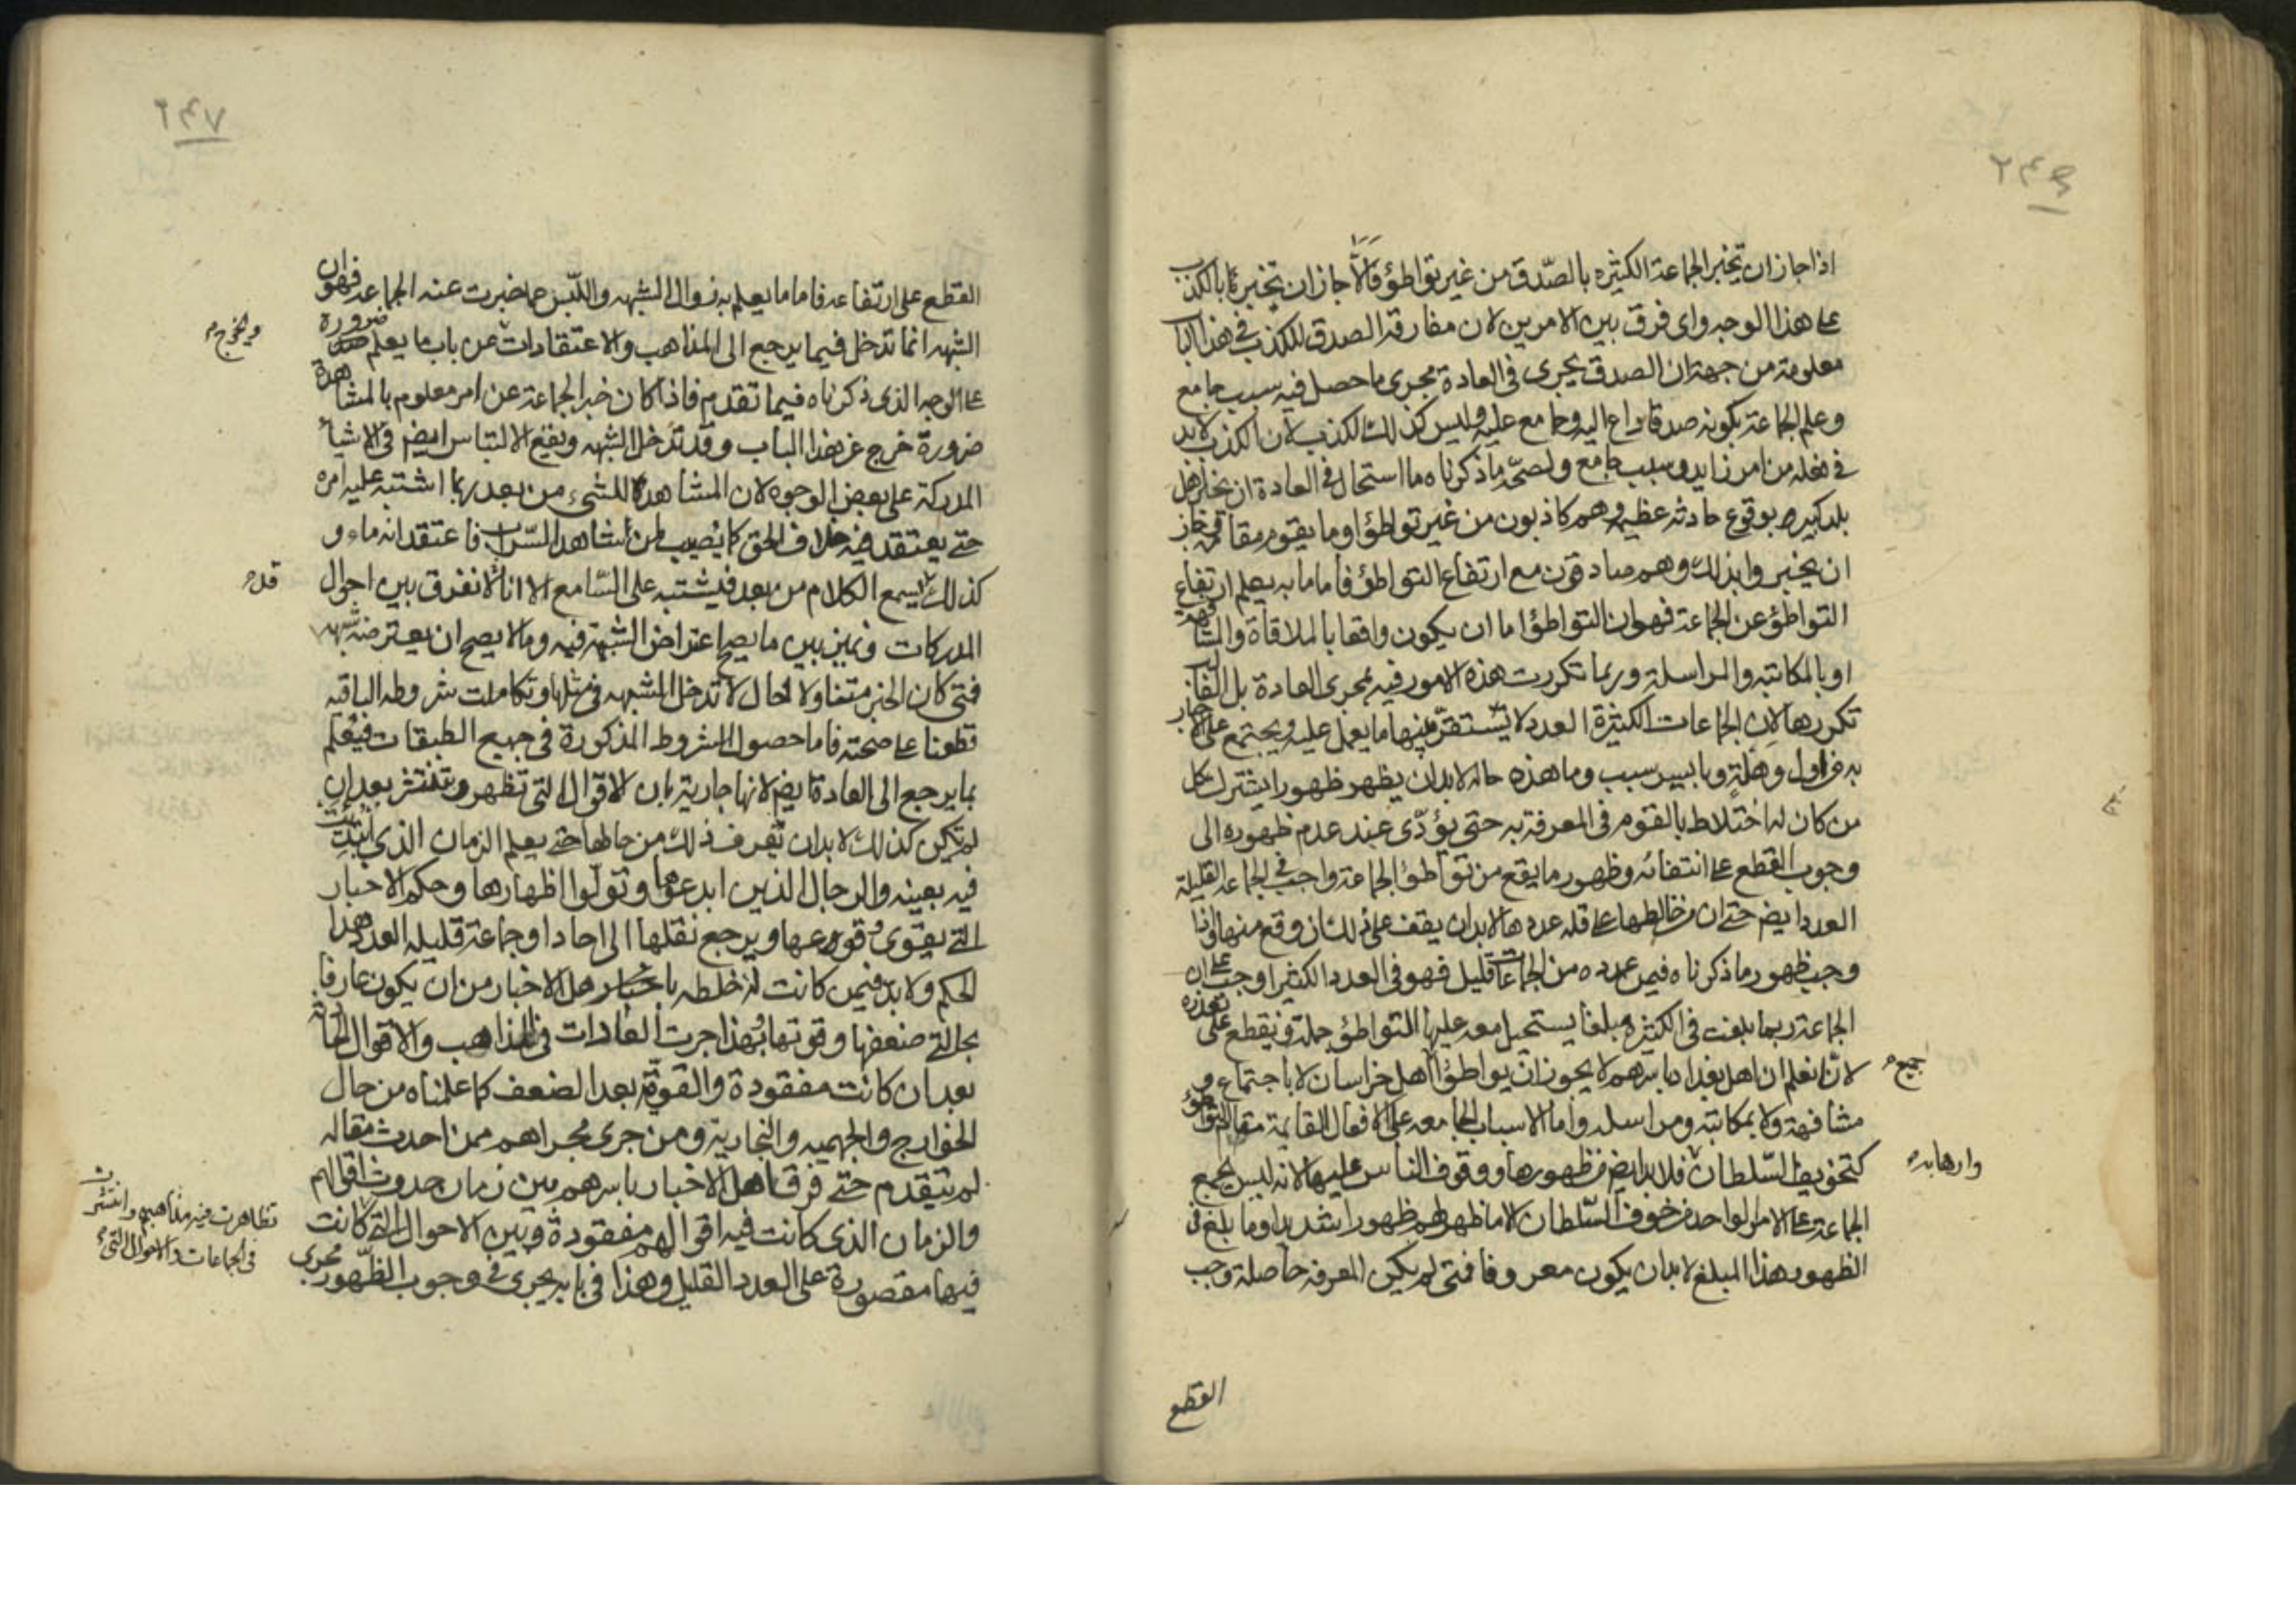 ٢٤٦
اذا جاز ان تخبر الجماعة الكثيره بالصّدق من غير تواطؤ فالّا جاز ان تخبر بالكذب
على هذا الوجه واى فرق بين الامرين لان مفارقة الصدق للكذب فى هذا الباب
معلومة من جهة ان الصدق يجرى فى العادة مجرى ما حصل فيه سبب جامع
وعلم الجماعة بكونه صدقا داع اليه وجامع عليه وليس كذلك الكذب لان الكذب لابد
فى فعله من امر زايد وسبب جامع ولصحّة ما ذكرناه ما استحال فى العادة ان يخبر اهل
بلد كبير بوقوع حادثه عظيمه وهم كاذبون من غير تواطؤ او ما يقوم مقامه وجاز
ان يخبروا بذلك وهم صادقون مع ارتفاع التواطؤ فاما ما به يعلم ارتفاع
التواطؤ عن الجماعة فهو ان التواطؤ اما ان يكون واقعا بالملاقاة والمشافهة
او بالمكاتبه والمراسلة وربما تكررت هذه الامور فيه بمجرى العادة بل الغالب
تكررها لان الجماعات الكثيرة العدد لا يستقرّ فيها ما يعمل عليه ويجتمع على الاخبار
به فى اول وهلة وبايسر سبب وما هذه حاله لابد ان يظهر ظهورا يشترك كل
من كان له اختلاط بالقوم فى المعرفة به حتى يؤدّى عند عدم ظهوره الى
وجوب القطع على انتفائه وظهور ما يقع من تواطؤ الجماعة واجب فى الجماعة القليلة
العدد ايضم حتى ان من خالطها على قلة عددها لابد ان يقف على ذلك ان وقع منها واذا
وجب ظهور ما ذكرناه فيمن عدده من الجماعات قليل فهو فى العدد الكثير اوجب على ان
الجماعة ربما بلغت فى الكثرة مبلغا يستحيل معه عليها التواطؤ جملة ويقطع على تعذره
لانّا نعلم ان اهل بغداد باسرهم لا يجوز ان يواطؤا اهل خراسان لا باجتماع و
جميع
مشافهة ولا بمكاتبة ومراسله واما الاسباب الجامعه على الافعال القايمة مقام التواطؤ
كتخويف السّلطان فلابد ايضم من ظهورها ووقوف الناس عليها لانه ليس يجمع
وارهابه
الجماعة على الامر الواحد من خوف السّلطان الا ما ظهر لهم ظهورا شديدا وما بلغ فى
الظهور هذا المبلغ لابد ان يكون معروفا فمتى لم يكن المعرفه حاصلة وجب
القطع
٢٤٧
القطع على ارتفاعه فاما ما يعلم به زوال الشبهه واللّبس عما خبرت عنه الجماعه فهو ان
الشبهه انما تدخل فيما يرجع الى المذاهب والاعتقادات عن باب ما يعلم ضرورة
ويخرج
على الوجه الذى ذكرناه فيما تقدم فاذا كان خبر الجماعة عن امر معلوم بالمشاهدة
ضرورة خرج عن هذا الباب وقد تدخل الشبهه ويقع الالتباس ايضم فى الاشياء
المدركة على بعض الوجوه لان المشاهدة للشىء من بعد ربما اشتبه عليه امره
حتى يعتقد فيه خلاف الحق كما يصيب من شاهد السّراب فاعتقد انه ماء و
كذلك يسمع الكلام من بعد فيشتبه على السّامع الا انا لا نفرق بين احوال
قد
المدركات ونميز بين ما يصح اعتراض الشبهة فيه وما لا يصح ان يعترضه شبهه
فمتى كان الخبر متناولا لحال لا تدخل الشبهه فى مثلها وتكاملت شروطه الباقيه
قطعنا على صحته فاما حصول الشروط المذكورة فى جميع الطبقات فيعلم
بما يرجع الى العادة ايضم لانها جارية بان الاقوال التى تظهر وتنتشر بعد ان
لم تكن كذلك لابد ان تعرف ذلك من حالها حتى يعلم الزمان الذى ابتدئت
فيه بعينه والرجال الذين ابدعوها وتولّوا اظهارها وحكم الاخبار
التى يقوى فروعها ويرجع نقلها الى احاد او جماعة قليله العدد هذا
الحكم ولابد فيمن كانت له خلطه باهل الاخبار من ان يكون عارفا
بحالتى ضعفها وقوتها وبهذا جرت العادات فى المذاهب والاقوال الحادثه
بعد ان كانت مفقودة والقوية بعد الضعف كما علمناه من حال
الخوارج والجهميه والنجارية ومن جرى مجراهم ممن احدث مقاله
لم تتقدم حتى فرق اهل الاخبار باسرهم بين زمان حدوث اقوالهم
والزمان الذى كانت فيه اقوالهم مفقودة وبين الاحوال التى كانت
تظاهرت فيه مذاهبهم وانتشرت
فى الجماعات والاحوال التى
فيها مقصورة على العدد القليل وهذا فى بابه يجرى فى وجوب الظّهور مجرى